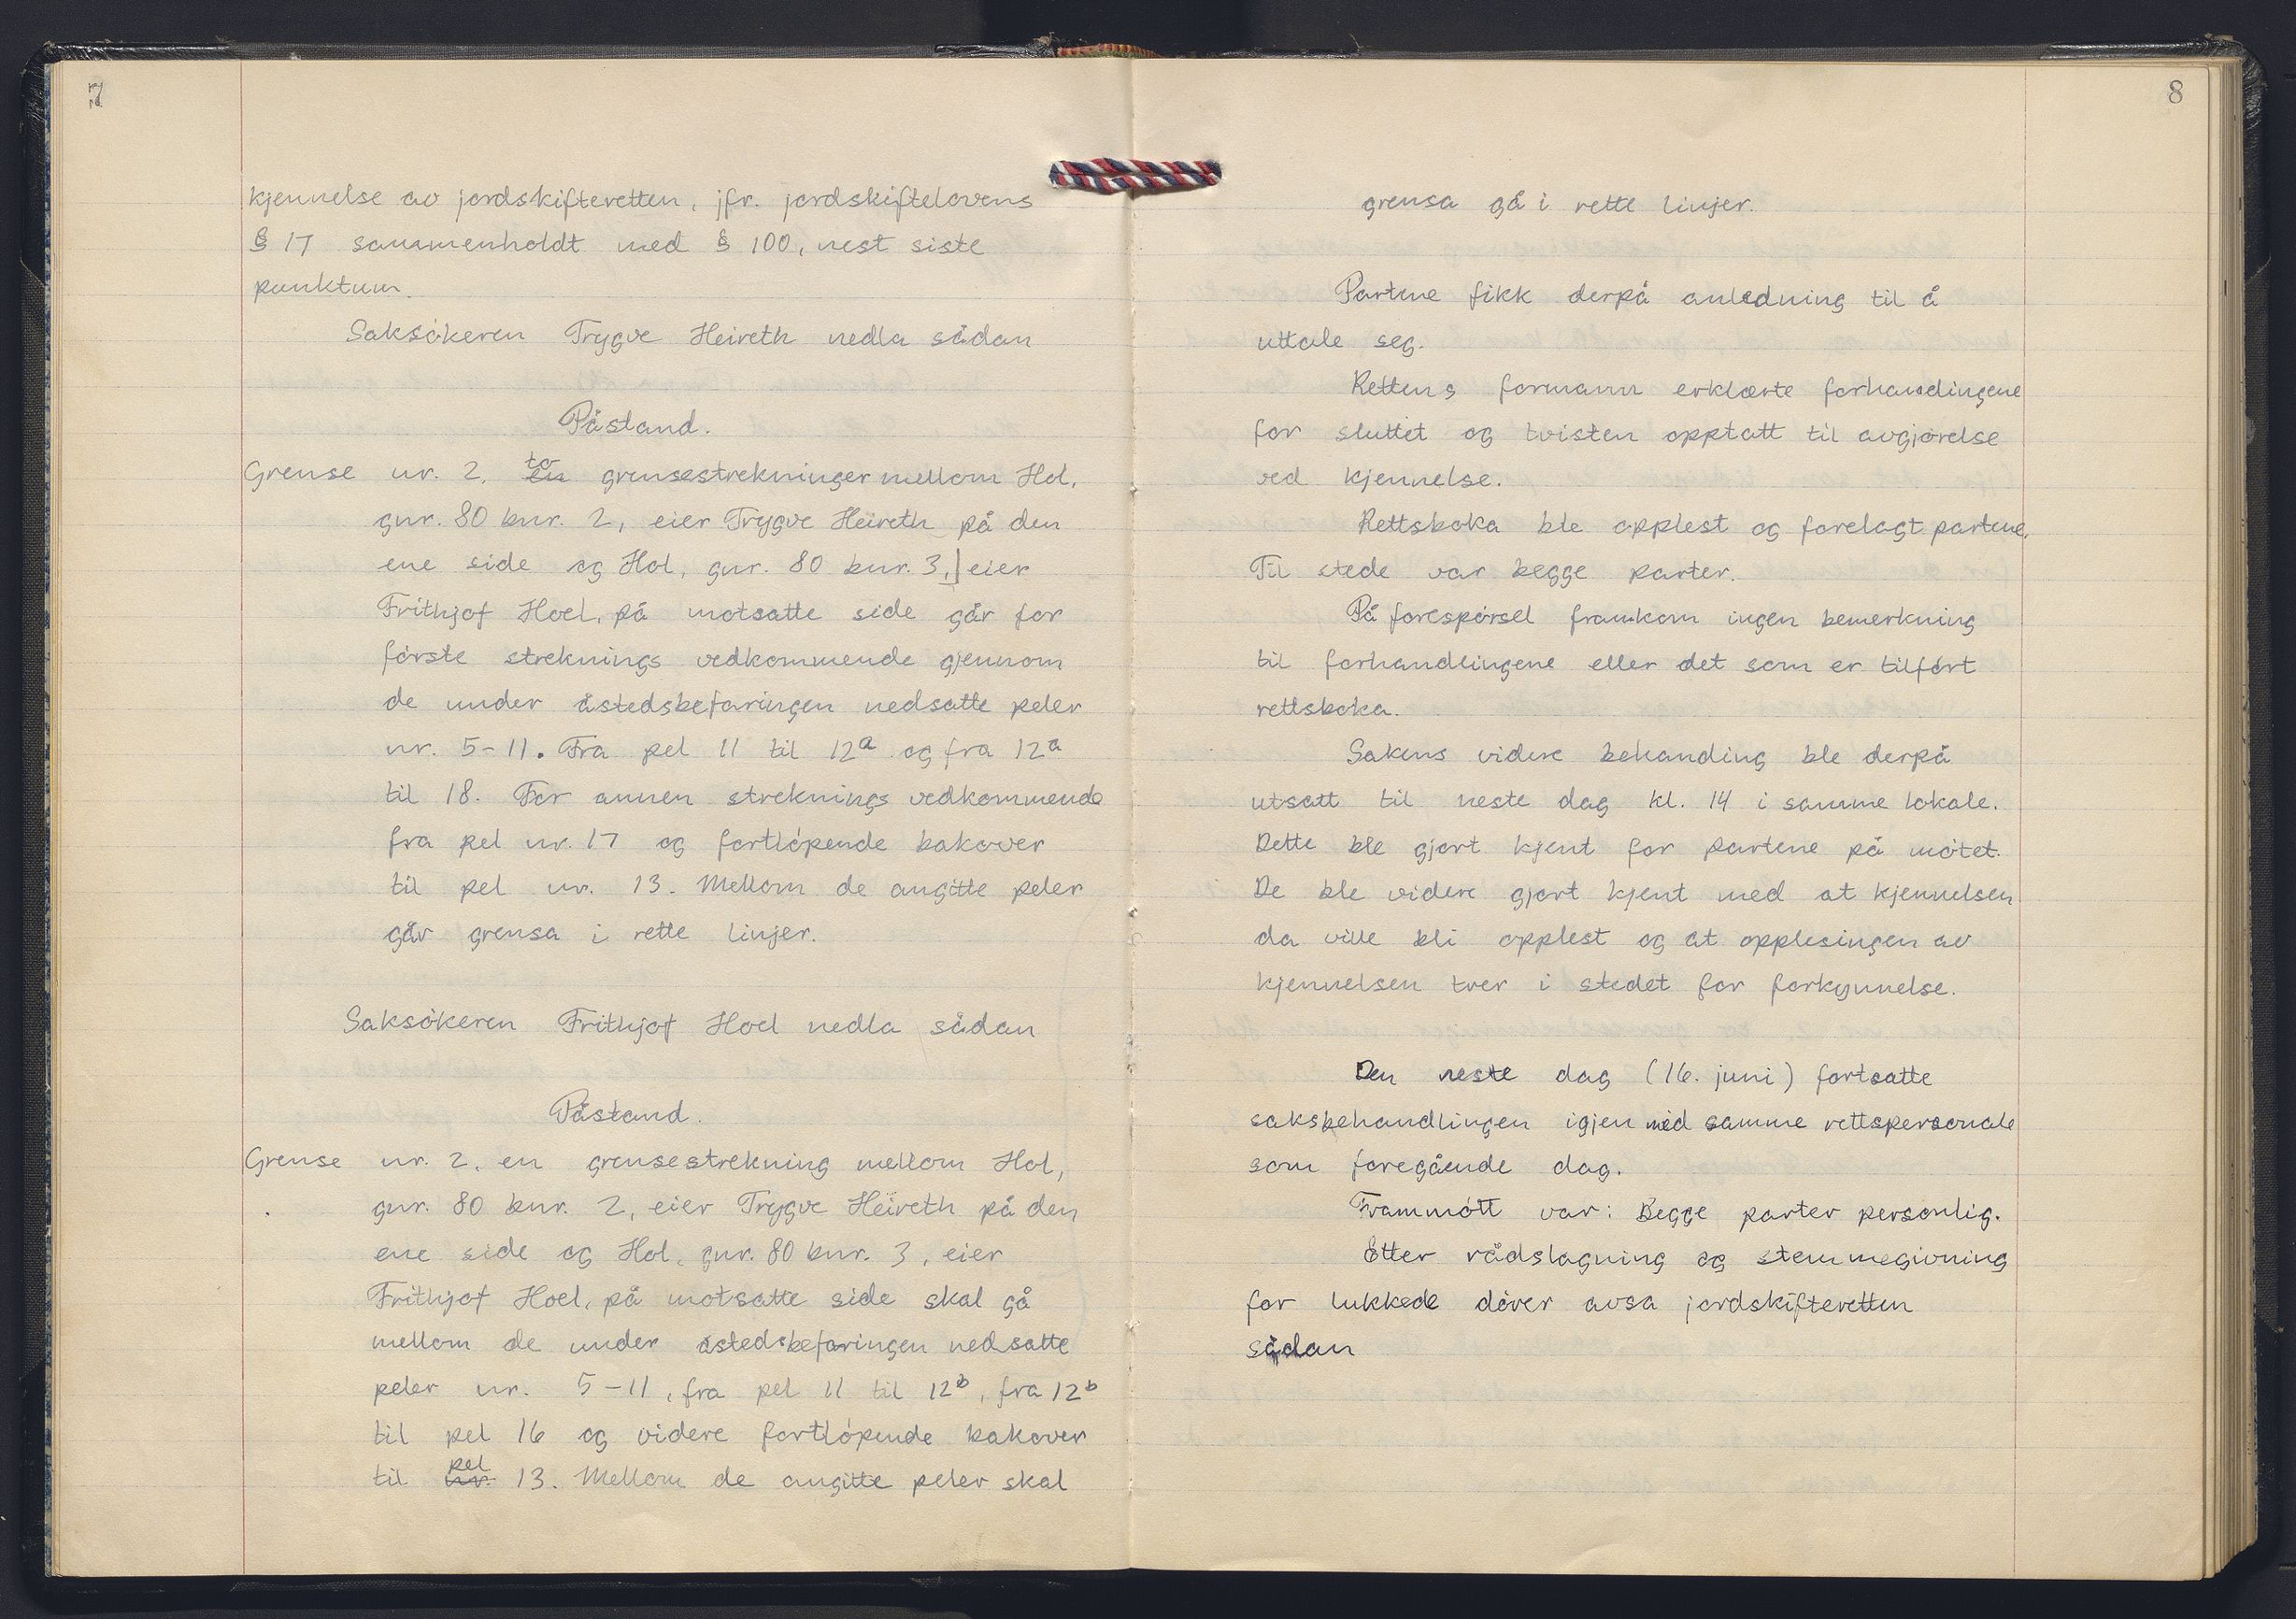 7
kjennelse av jordskifteretten, jfr. jordskiftelovens
§ 17 sammenholdt med § 100, nest siste
punktum.
Saksökeren Trygve Heireth nedla sådan
Påstand.
Grense nr. 2, en to grensestrekninger mellom Hol,
gnr. 80 bnr. 2, eier Trygve Heireth på den
ene side og Hol, gnr. 80 bnr. 3, eier
Frithjof Hoel, på motsatte side går for
förste streknings vedkommende gjennom
de under åstedsbefaringen nedsatte peler
nr. 5-11. Fra pel 11 til 12a og fra 12a
til 18. For annen streknings vedkommende
fra pel nr. 17 og fortlöpende bakover
til pel nr. 13. Mellom de angitte peler
går grensa i rette linjer.
Saksökeren Frithjof Hoel nedla sådan
Påstand.
Grense nr. 2, en grensestrekning mellom Hol,
gnr. 80 bnr. 2, eier Trygve Heireth på den
ene side og Hol, gnr. 80 bnr. 3, eier
Frithjof Hoel, på motsatte side skal gå
mellom de under åstedsbefaringen nedsatte
peler nr. 5-11, fra pel 11 til 12b, fra 12b
til pel 16 og videre fortlöpende bakover
til nr. pel 13. Mellom de angitte peler skal
8
grensa gå i rette linjer.
Partene fikk derpå anledning til å
uttale seg.
Rettens formann erklærte forhandlingene
for sluttet og tvisten opptatt til avgjörelse
ved kjennelse.
Rettsboka ble opplest og forelagt partene.
Til stede var begge parter.
På forespörsel framkom ingen bemerkning
til forhandlingene eller det som er tilfört
rettsboka.
Sakens videre behanding ble derpå
utsatt til neste dag kl. 14 i samme lokale.
Dette ble gjort kjent for partene på mötet.
De ble videre gjort kjent med at kjennelsen
da ville bli opplest og at opplesingen av
kjennelsen trer i stedet for forkynnelse.
Den neste dag (16. juni) fortsatte
saksbehandlingen igjen med samme rettspersonale
som foregående dag.
Frammött var: Begge parter personlig.
Etter rådslagning og stemmegivning
for lukkede dörer avsa jordskifteretten
sådan